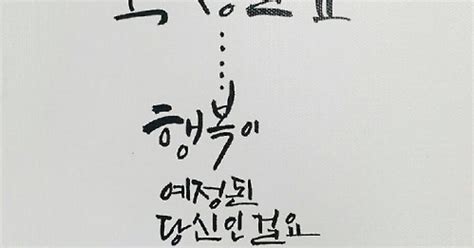 행복이
예정된
당신인걸요